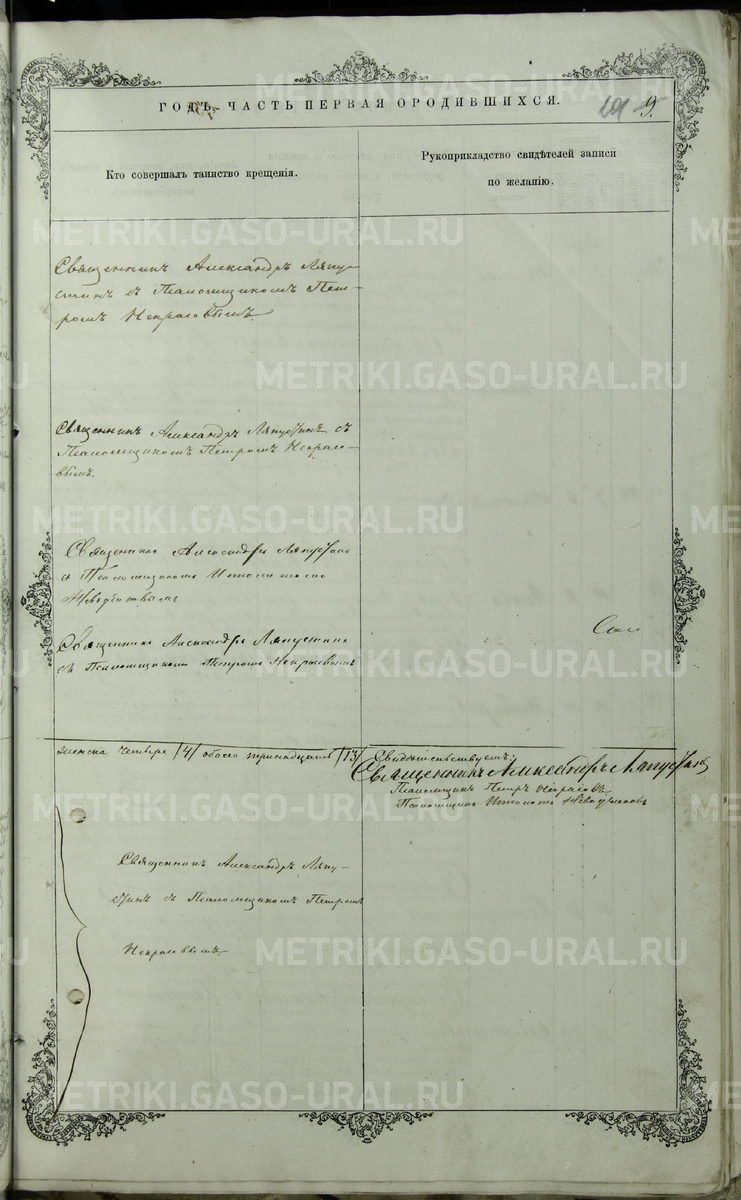 ГОДЪ, ЧАСТЬ ПЕРВАЯ О РОДИВШИХСЯ.
101 9.
Кто совершалъ таинство крещенія.
Рукоприкладство свидѣтелей записи
по желанію.
Священникъ Александръ Ляпу-
стинъ съ Псаломщикомъ Пет-
ромъ Некрасовымъ
Священникъ Александръ Ляпустинъ съ
Псаломщикомъ Петромъ Некрасо-
вымъ.
Священникъ Александръ Ляпустинъ
съ Псаломщикомъ
Священникъ Александръ Ляпустинъ
съ Псаломщикомъ Петромъ Некрасовымъ
женска четыре /4/ обоего тринадцать /13/
Свидѣтельствуемъ:
Священникъ Александръ Ляпустинъ
Псаломщикъ Петръ Некрасовъ
Псаломщикъ
Священникъ Александръ Ляпу-
стинъ съ Псаломщикомъ Петромъ
Некрасовымъ
METRIKI.GASO-URAL.RU